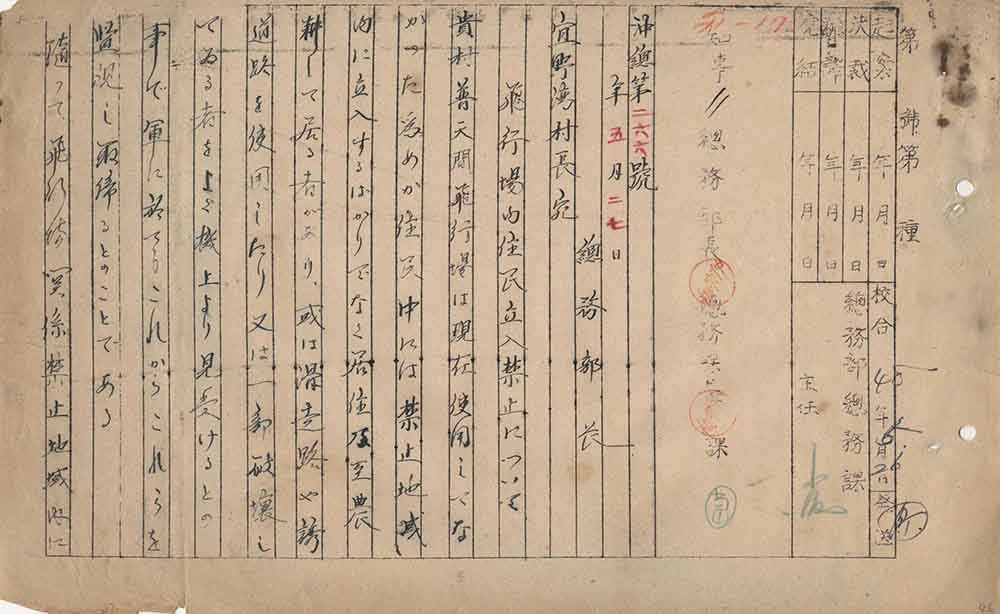 第 號第 種
起案 年 月 日
決裁 年 月 日
年 月 日
完結 年 月 日
校合
年 月 26日 發送
總務部總務課
主任
知事 總務部長 總務課
沖總第二六六號
年五月二七日
總務部長
宜野湾村長宛
飛行場内住民立入禁止について
貴村普天間飛行場は現在使用してな
かった為めか住民中には禁止地域
内に立入するばかりでなく居住乃至農
耕して居る者があり、或は滑走路や誘
道路を使用したり又は一部破壊し
てゐる者を上機上より見受けるとの
事で軍に於てもこれからこれらを
監視し取締るとのことである
随って飛行場関係禁止地域内に